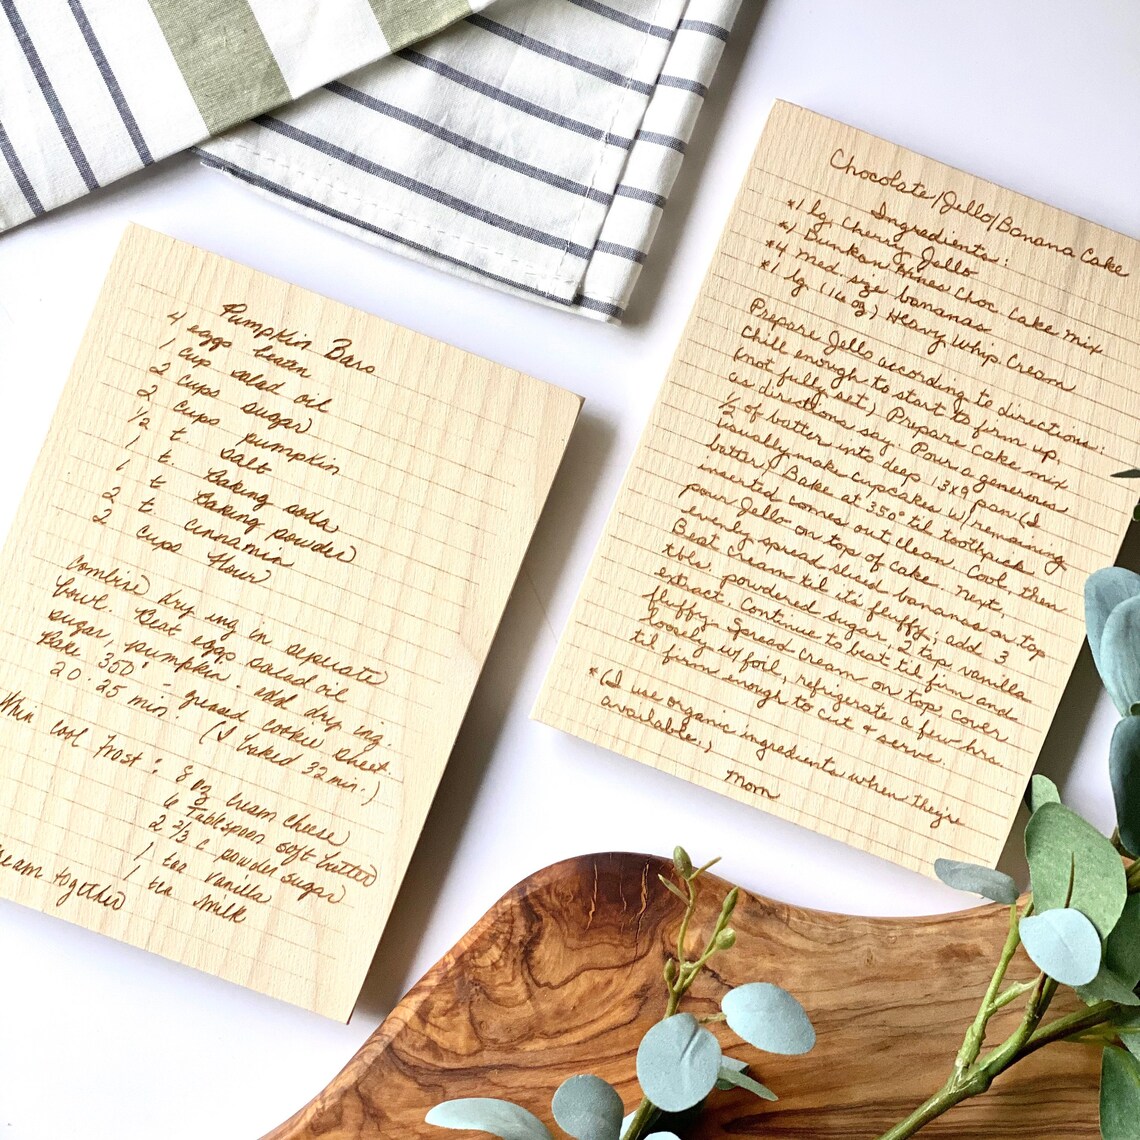 Pumpkin Bars
4 eggs beaten
1 cup salad oil
2 cups sugar
2 cups pumpkin
1/2 t. salt
1 t. Baking soda
1 t Baking powder
2 t. cinnamin
2 cups flour
Combine dry ing in seperate
bowl. Beat eggs salad oil
sugar, pumpkin. add dry ing.
Bake 350° - greased cookie sheet.
20-25 min. (I baked 32 min.)
When cool frost: 8 oz cream cheese
6 Tablespoon soft butter
2 2/3 c powder sugar
1 tea vanilla
1 tea milk
together
Chocolate/Jello/Banana Cake
Ingredients:
*1 lg. cherry Jello
*1 Dunkan Hines Choc. cake mix
*4 med. size bananas
*1 lg. (16 oz) Heavy Whip. Cream
Prepare Jello according to directions:
Chill enough to start to firm up,
(not fully set) Prepare cake mix
as directions say. Pour a generous
1/2 of batter into deep 13x9 pan (I
usually make cupcakes w/ remaining
batter) Bake at 350° til toothpick
inserted comes out clean. Cool, then
pour Jello on top of cake. Next,
evenly spread sliced bananas on top.
Beat cream til it's fluffy; add 3
tbls. powdered sugar, 2 tsp. vanilla
extract. Continue to beat til firm and
fluffy. Spread cream on top, cover
loosely w/foil, refrigerate a few hrs.
til firm enough to cut & serve.
*(I use organic ingredients when they're
available.)
Mom